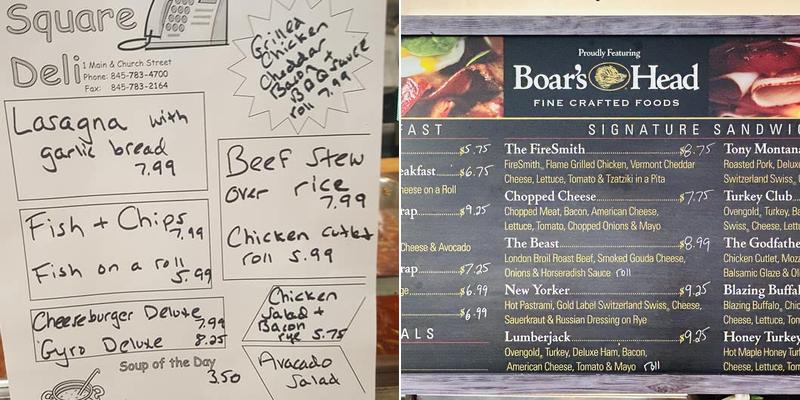 Square
Deli
1 Main & Church Street
Phone: 845-783-4700
Fax: 845-783-2164
Grilled
Chicken
Cheddar
Bacon +
BBQ sauce
roll 7.99
Lasagna with
garlic bread
7.99
Beef Stew
over rice
7.99
Chicken cutlet
roll 5.99
Fish + Chips
7.99
Fish on a roll
5.99
Cheeseburger Deluxe
7.99
Gyro Deluxe 8.25
Chicken
Salad +
Bacon
rye 5.75
Soup of the Day
3.50
Avacado
Salad
Proudly Featuring
Boar's Head
FINE CRAFTED FOODS
AST
SIGNATURE SANDWIC
$5.75
eakfast $6.75
heese on a Roll
rap $9.25
Cheese & Avocado
rap $7.25
ge $6.99
$6.99
ALS
The FireSmith $8.75
FireSmith, Flame Grilled Chicken, Vermont Cheddar
Cheese, Lettuce, Tomato & Tzatziki in a Pita
Chopped Cheese $7.75
Chopped Meat, Bacon, American Cheese,
Lettuce, Tomato, Chopped Onions & Mayo
The Beast $8.99
London Broil Roast Beef, Smoked Gouda Cheese,
Onions & Horseradish Sauce roll
New Yorker $9.25
Hot Pastrami, Gold Label Switzerland Swiss, Cheese,
Sauerkraut & Russian Dressing on Rye
Lumberjack $9.25
Ovengold, Turkey, Deluxe Ham, Bacon,
American Cheese, Tomato & Mayo roll
Tony Montana
Roasted Pork, Deluxe
Switzerland Swiss,
Turkey Club
Ovengold, Turkey, Ba
Swiss, Cheese, Lettu
The Godfathe
Chicken Cutlet, Mozz
Balsamic Glaze & Ol
Blazing Buffal
Blazing Buffalo, Chic
Cheese, Lettuce, Tom
Honey Turkey
Hot Maple Honey Turk
Cheese, Lettuce, Tom